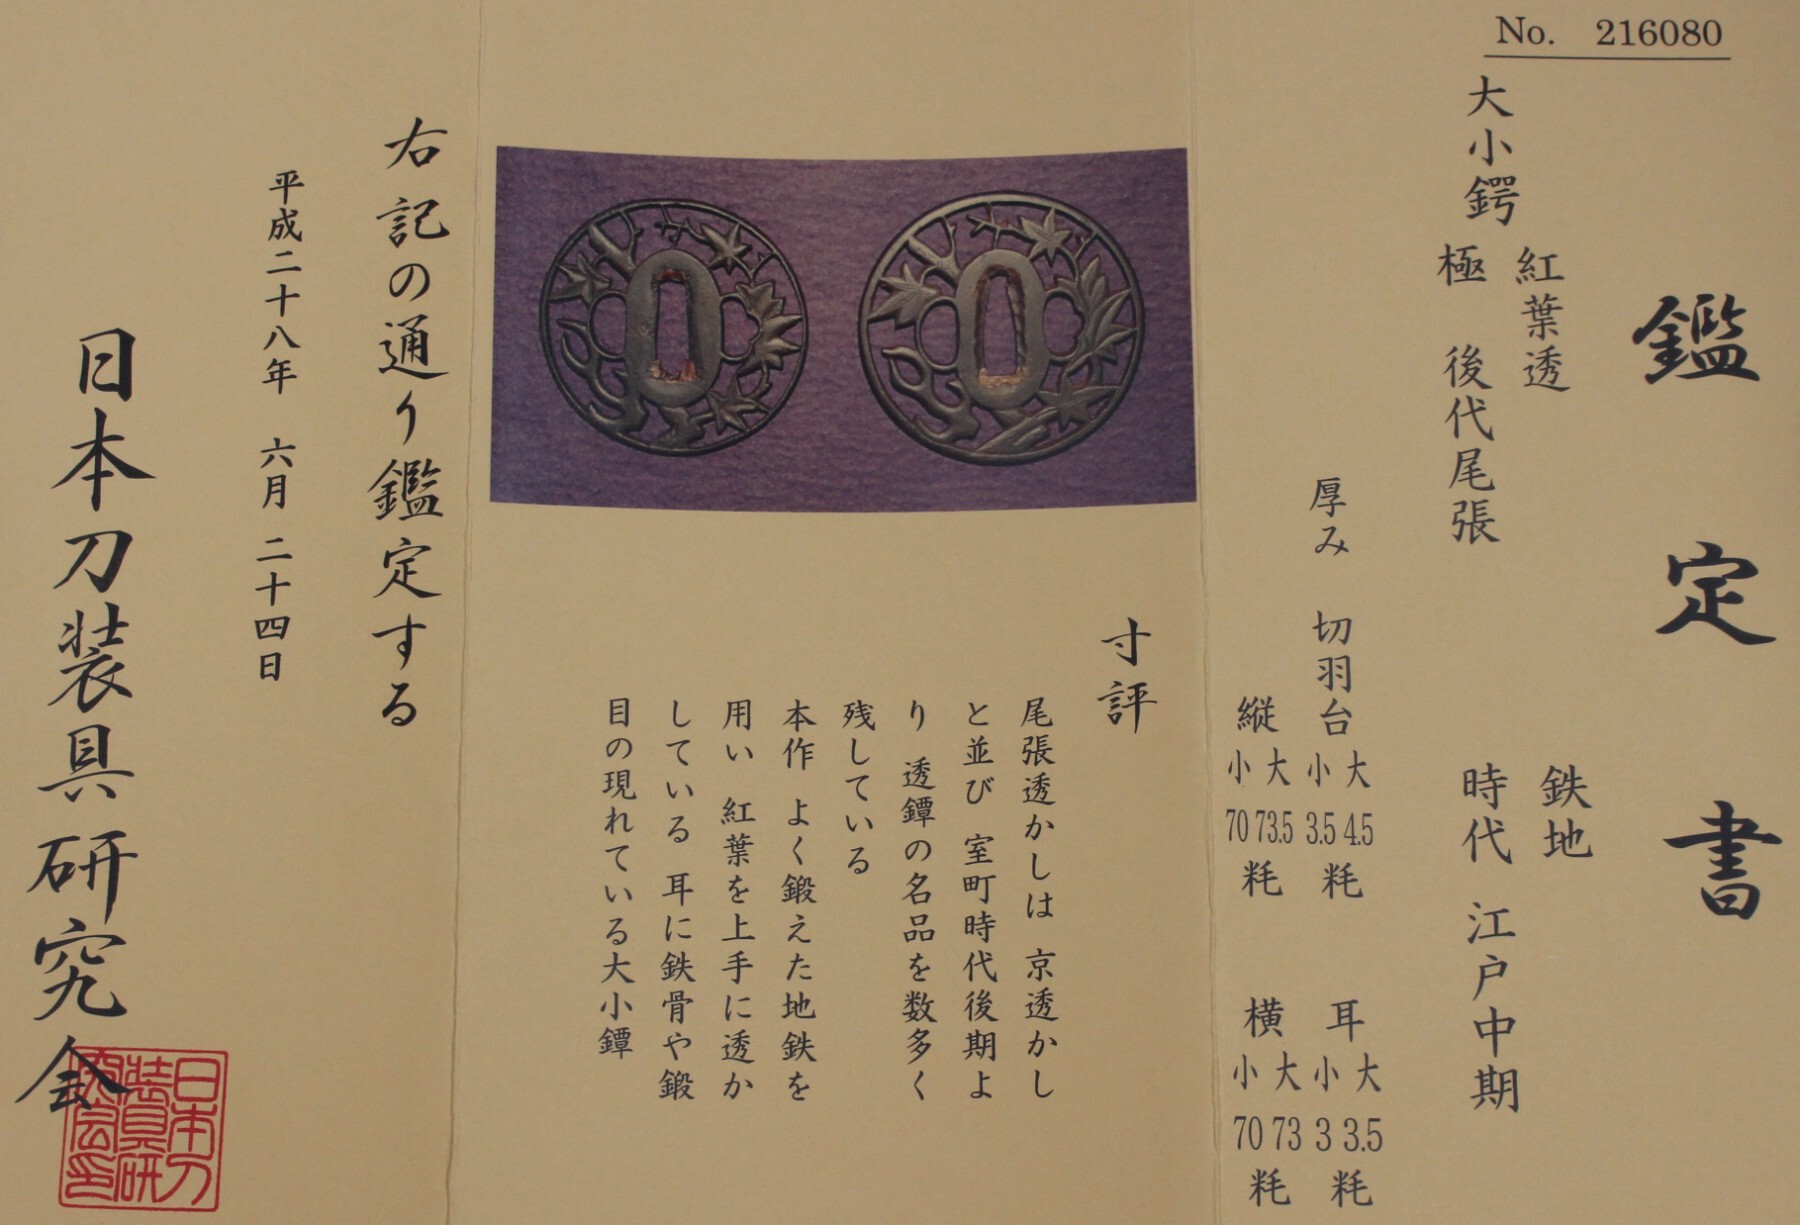 No. 216080
鑑定書
大小鍔
紅葉透
極 後代尾張
鉄地
時代 江戸中期
厚み 切羽台 大 4.5 小 3.5 粍
耳 大 3.5 小 3 粍
縦 大 73.5 小 70 粍
横 大 73 小 70 粍
寸評
尾張透かしは 京透かし
と並び 室町時代後期よ
り 透鐔の名品を数多く
残している
本作 よく鍛えた地鉄を
用い 紅葉を上手に透か
している 耳に鉄骨や鍛
目の現れている大小鐔
右記の通り鑑定する
平成二十八年 六月 二十四日
日本刀装具研究会
日本刀
装具研
究会印